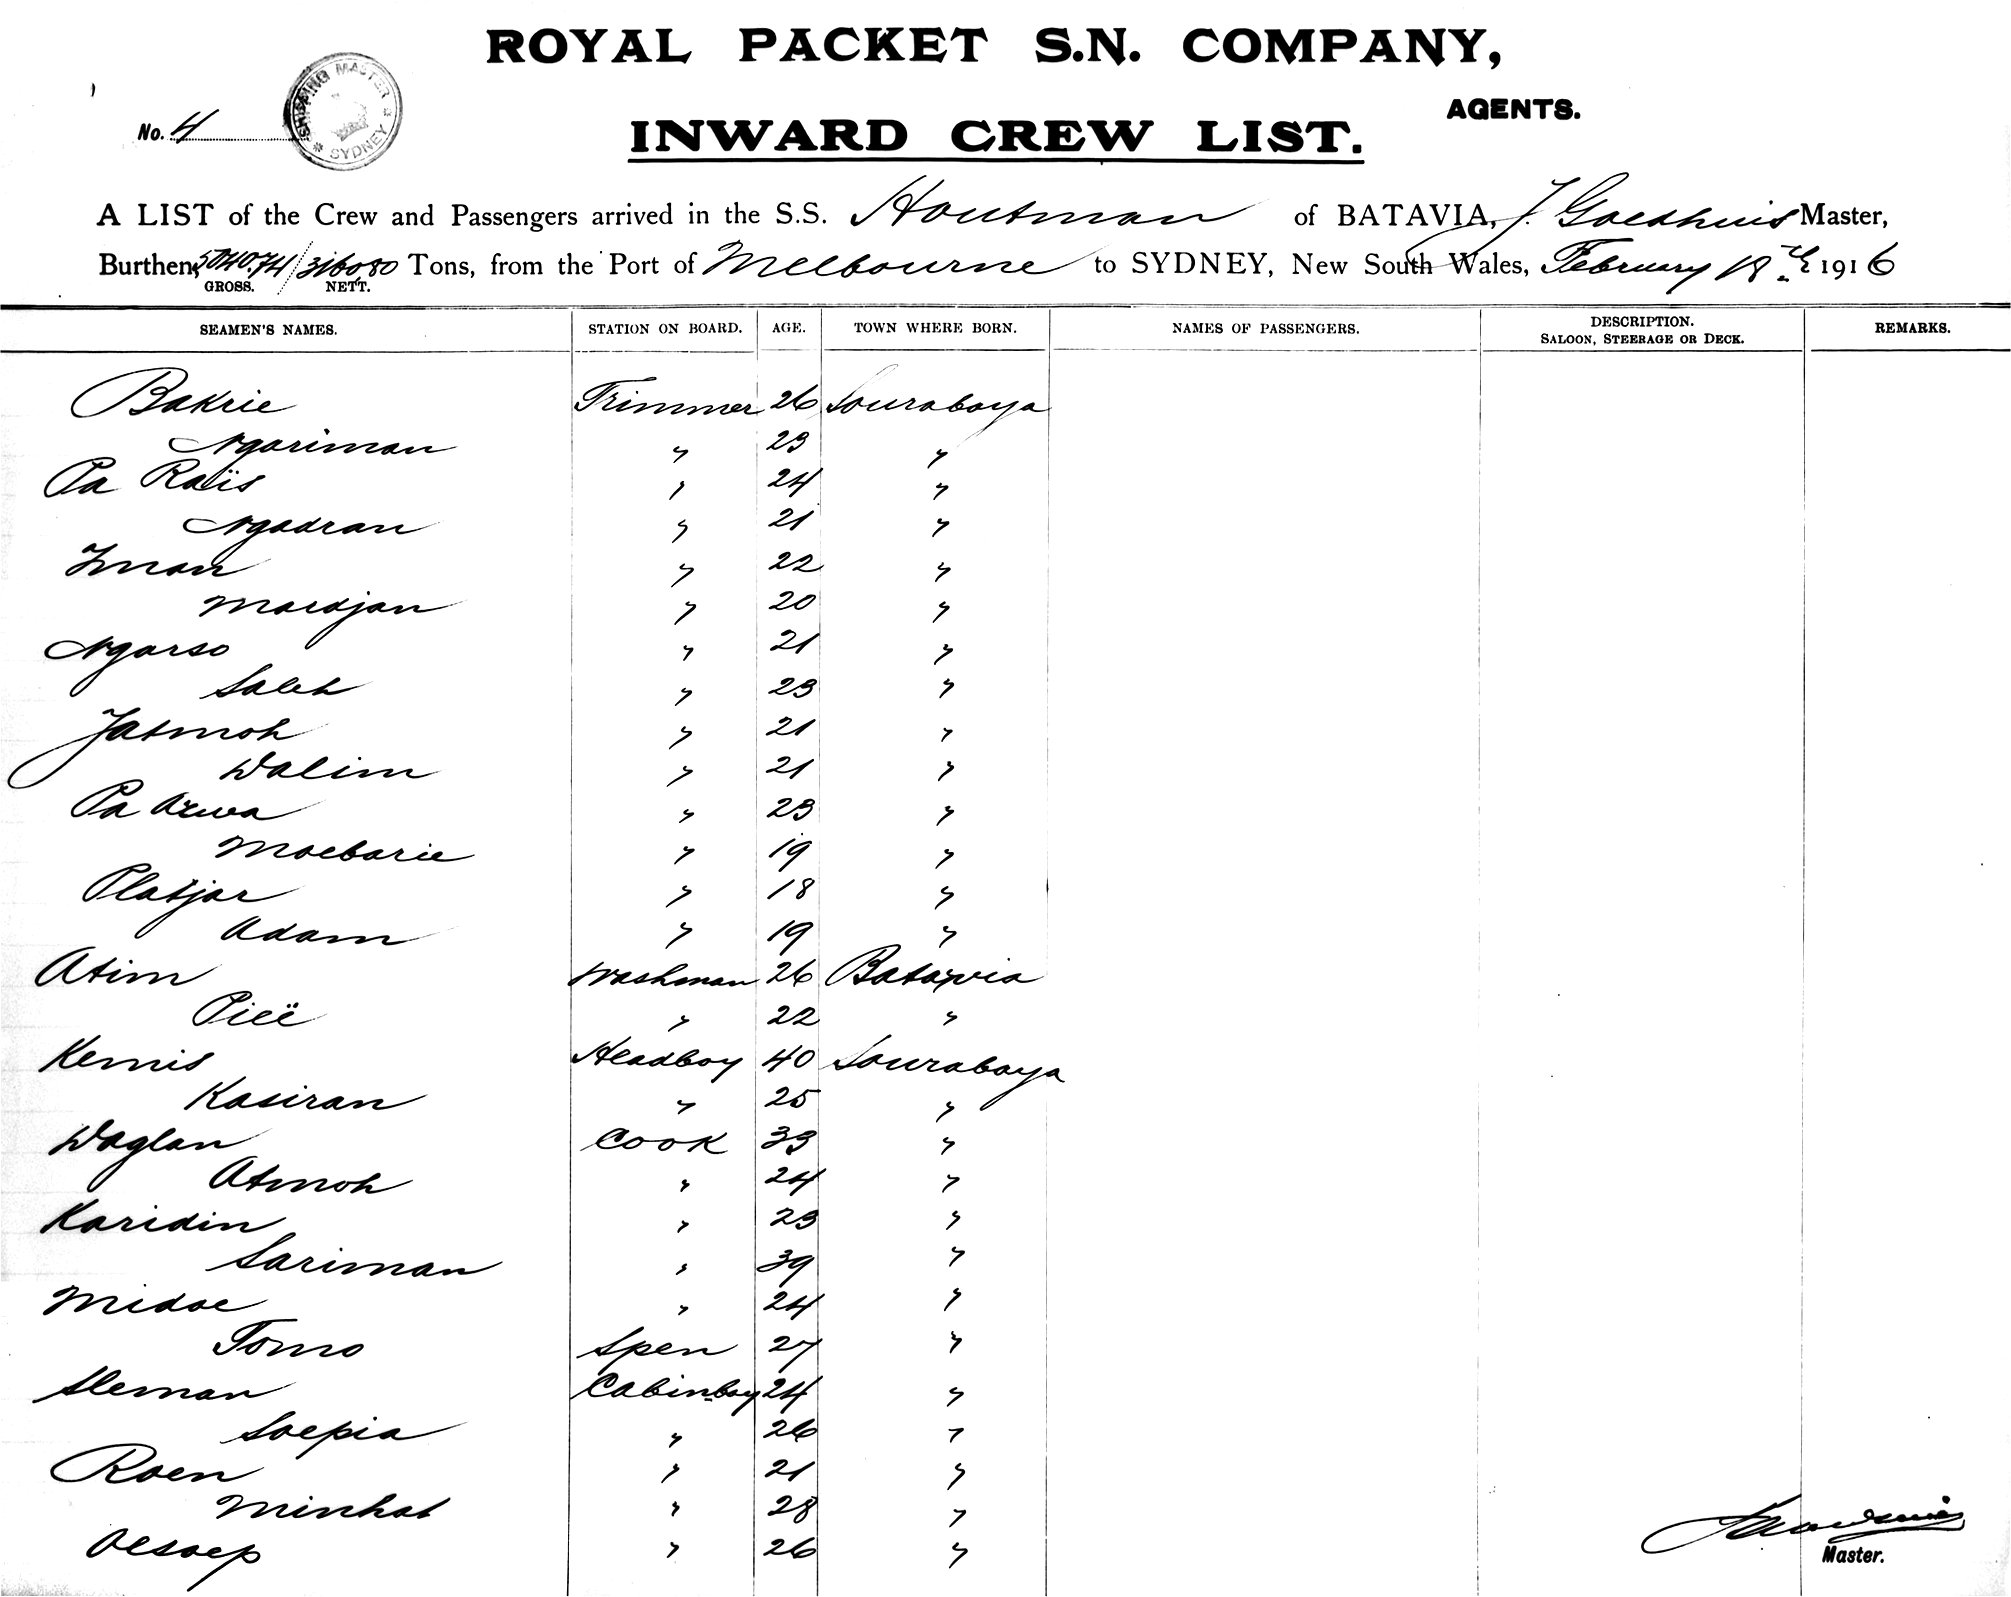 ROYAL PACKET S.N. COMPANY,
AGENTS.
No. 4
SHIPPING MASTER SYDNEY
INWARD CREW LIST.
A LIST of the Crew and Passengers arrived in the S.S. Houtman of BATAVIA, J. Goedhuis Master,
Burthen, 5040.74/3160.80 Tons, from the Port of Melbourne to SYDNEY, New South Wales, February 18th 1916
GROSS. NETT.
SEAMEN'S NAMES. STATION ON BOARD. AGE. TOWN WHERE BORN. NAMES OF PASSENGERS. DESCRIPTION. SALOON, STEERAGE OR DECK. REMARKS.
Bakrie Trimmer 26 Sourabaya
Ngariman " 23 "
Pa Raïs " 24 "
Ngadran " 21 "
Iman " 22 "
Mardjan " 20 "
Ngarso " 21 "
Saleh " 23 "
Jatmoh " 21 "
Walim " 21 "
Pa Arwa " 23 "
Moebarie " 19 "
Platjar " 18 "
Adam " 19 "
Atim Washman 26 Batavia
Pieë " 22 "
Kemis Headboy 40 Sourabaya
Kasiran " 25 "
Waglan Cook 33 "
Atmoh " 24 "
Karidin " 23 "
Sariman " 39 "
Midoe " 24 "
Tomo Spen 27 "
Sleman Cabinboy 24 "
Soepia " 26 "
Roen " 21 "
Minhat " 28 "
Oesoep " 26 "
Master.